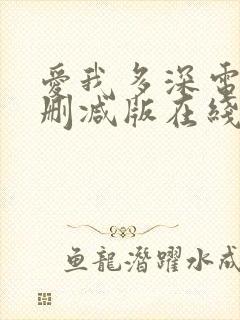 愛我多深電
刪减版在綫
鱼龍潛躍水成